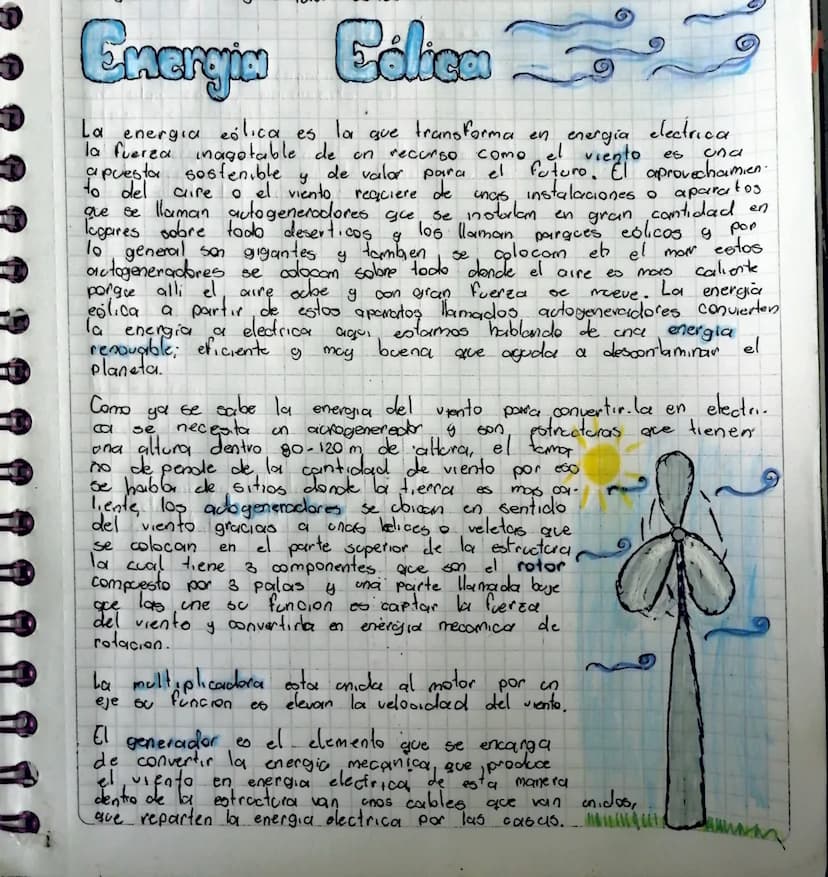 Energia Eólica
La energia eólica es la que transforma en energia electrica
la fuerza inagotable de un recurso como el viento es una
apuesta sostenible y de valor para el futuro. El aprovechamien-
to del aire o el viento, requiere de unas instalaciones o aparatos
que se llaman autogeneradores que se instalan en gran cantidad en
lugares sobre todo deserticos y los llaman parques eólicos y por
lo general son gigantes y tambien se colocam eb el mar estos
autogeneradores se colocan sobre todo donde el aire es mas caliente
porque alli el aire sube y con gran fuerza se mueve. La energia
eólica a partir de estos aparatos llamados autogeneradores convierten
la energia a electrica aqui estamos hablando de una energia
renovable; eficiente y muy buena que ayuda a descontaminar el
planeta.
Como ya se sabe la energia del viento para convertir.la en electri-
ca se necesita un aurogenereador y son estructuras que tienen
una altura dentro 80-120 m de altura, el tama
no de pende de la cantidad de viento por eso
se habla de sitios donde la tierra es mas ca-
liente, los autogeneradores se ubican en sentido
del viento gracias a unas helices o veletas que
se colocan en el parte superior de la estructura
la cual tiene 3 componentes que son el rotor
compuesto por 3 palas y una parte llamada buje
que las une su funcion es captar la fuerza
del viento y convertirla en energia mecanica de
rotacion.
La multiplicadora esta unida al motor por un
eje su funcion es elevan la velocidad del viento.
El generador es el elemento que se encarga
de convertir la energia mecanica, que produce
el viento en energia electrica, de esta manera
dentro de la estructura van unos cables que van unidos,
que reparten la energia electrica por las casas.